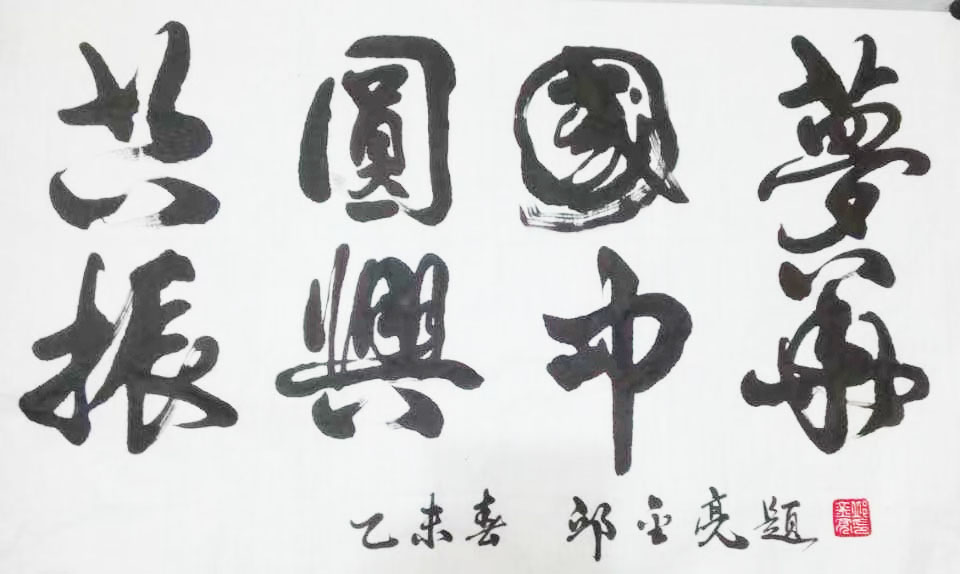 共圓國夢
振興中華
乙未春 邱金亮題